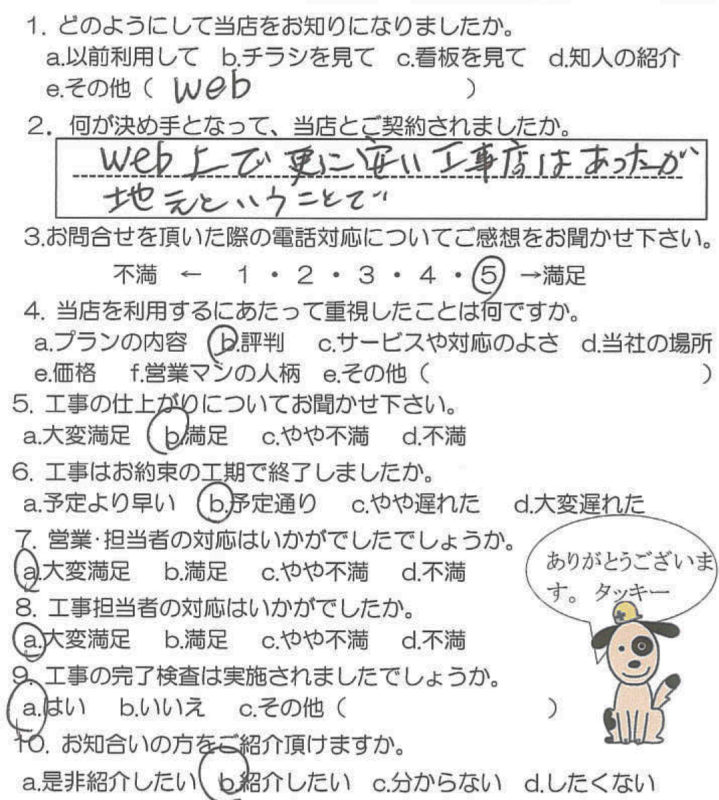 1. どのようにして当店をお知りになりましたか。
a.以前利用して b.チラシを見て c.看板を見て d.知人の紹介
e.その他（ web ）
2. 何が決め手となって、当店とご契約されましたか。
web上で更に安い工事店はあったが
地元ということで
3.お問合せを頂いた際の電話対応についてご感想をお聞かせ下さい。
不満 ← 1・2・3・4・5 →満足
4. 当店を利用するにあたって重視したことは何ですか。
a.プランの内容 b.評判 c.サービスや対応のよさ d.当社の場所
e.価格 f.営業マンの人柄 e.その他（ ）
5. 工事の仕上がりについてお聞かせ下さい。
a.大変満足 b.満足 c.やや不満 d.不満
6. 工事はお約束の工期で終了しましたか。
a.予定より早い b.予定通り c.やや遅れた d.大変遅れた
7. 営業・担当者の対応はいかがでしたでしょうか。
a.大変満足 b.満足 c.やや不満 d.不満
ありがとうございま
す。 タッキー
8. 工事担当者の対応はいかがでしたか。
a.大変満足 b.満足 c.やや不満 d.不満
9. 工事の完了検査は実施されましたでしょうか。
a.はい b.いいえ c.その他（ ）
10. お知合いの方をご紹介頂けますか。
a.是非紹介したい b.紹介したい c.分からない d.したくない